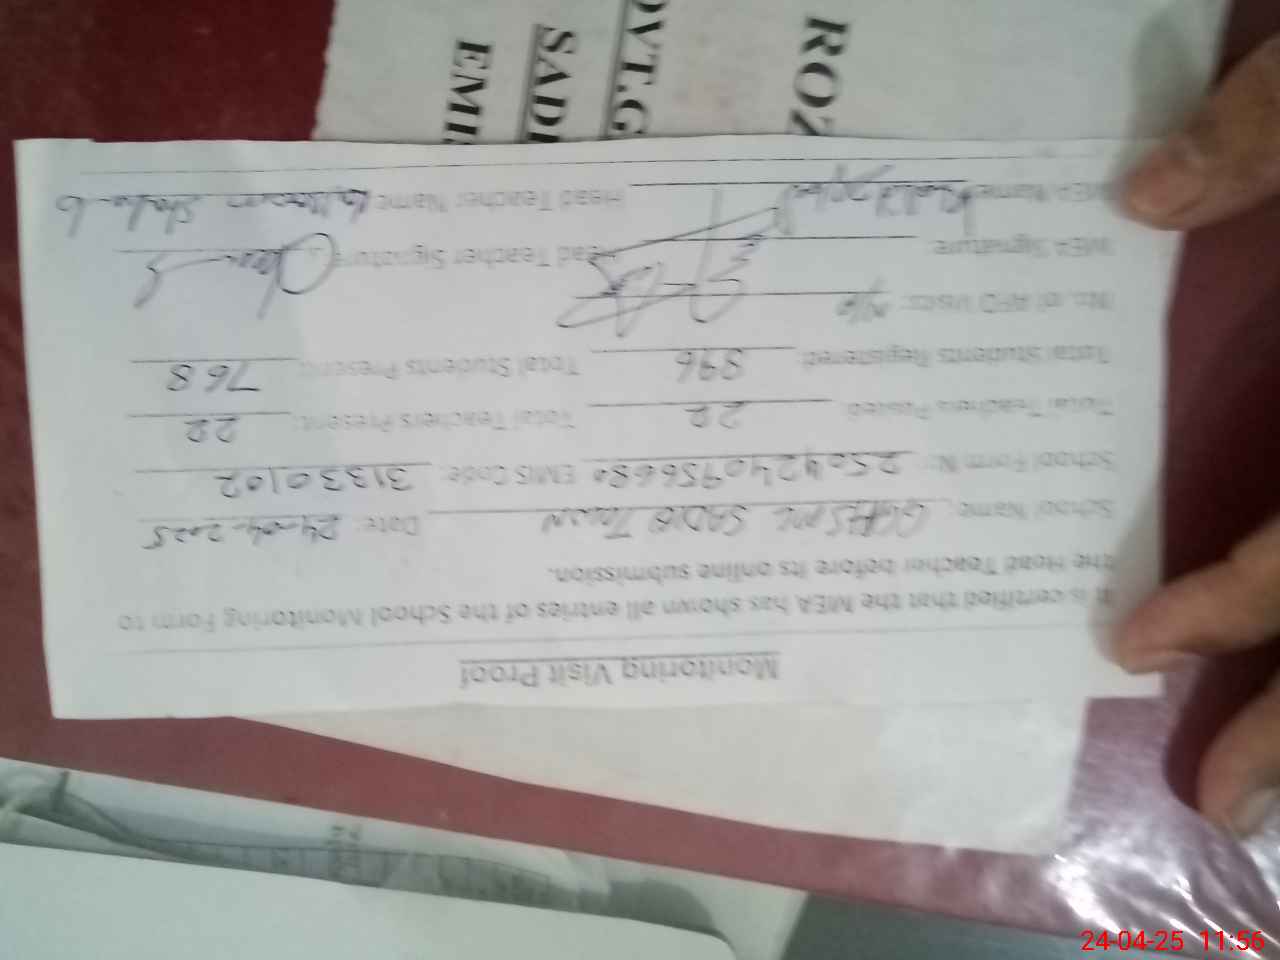 Monitoring Visit Proof
It is certified that the MEA has shown all entries of the School Monitoring Form to
the Head Teacher before its online submission.
School Name: SADIQ Town Date: 24-04-2025
School Form N: EMIS Code: 31330102
Total Teachers Posted: 22 Total Teachers Present: 22
Total Students Registered: 896 Total Students Present: 768
No. of AFD Visits:
MEA Signature: Head Teacher Signature
MEA Name: Head Teacher Name
ROZ
OVT.G
SADI
EMI
24-04-25 11:56